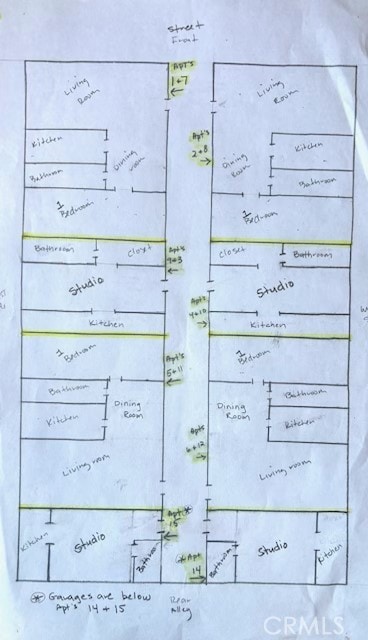 Street
Front
Apt's
1+7
Living
Room
Living
Room
Kitchen
Dining
room
Bathroom
1
Bedroom
Apt's
2+8
Kitchen
Dining
Room
Bathroom
1
Bedroom
Bathroom
Closet
Studio
Kitchen
Apt's
9+3
Closet
Bathroom
Studio
Kitchen
Apt's
4+10
1
Bedroom
Bathroom
Kitchen
Dining
Room
Living room
Apt's
5+11
1
Bedroom
Bathroom
Dining
Room
Kitchen
Living room
Apts
6+12
Kitchen
Studio
Bathroom
Apt
15
Apt
14
Bathroom
Studio
Kitchen
Garages are below
Apt's 14 + 15
Rear
Alley
CRMLS